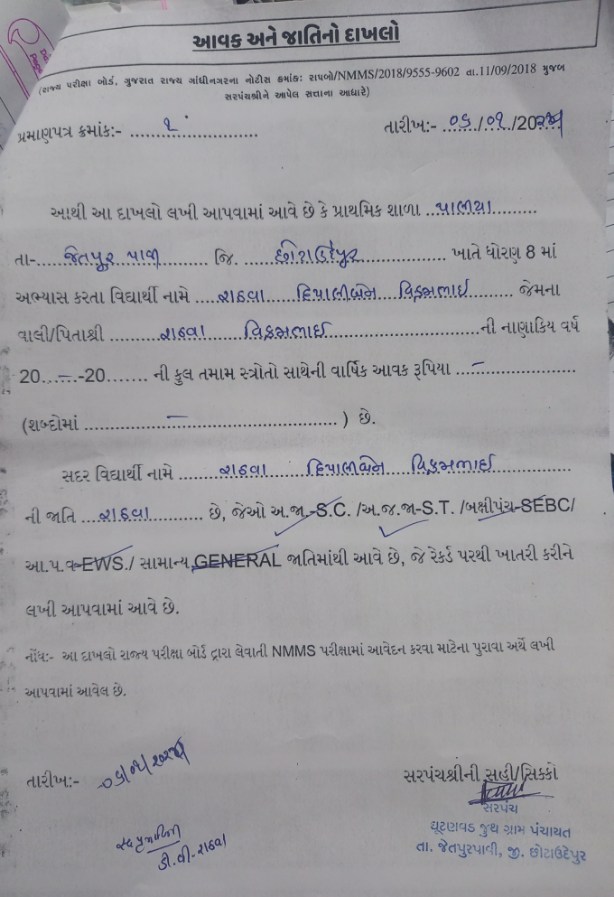 આવક અને જાતિનો દાખલો
(રાજ્ય પરીક્ષા બોર્ડ, ગુજરાત રાજ્ય ગાંધીનગરના નોટીસ ક્રમાંક: રાપબો/NMMS/2018/9555-9602 તા.11/09/2018 મુજબ
સરપંચશ્રીને આપેલ સત્તાના આધારે)
પ્રમાણપત્ર ક્રમાંક:- ૧ તારીખ:- ૦૬/૦૧/20
આથી આ દાખલો લખી આપવામાં આવે છે કે પ્રાથમિક શાળા પાલીયા
તા- જેતપુર પાવી જિ. છોટાઉદેપુર ખાતે ધોરણ 8 માં
અભ્યાસ કરતા વિદ્યાર્થી નામે રાઠવા દિપાલીબેન વિક્રમભાઈ જેમના
વાલી/પિતાશ્રી રાઠવા વિક્રમભાઈ ની નાણાકિય વર્ષ
20..–..-20....... ની કુલ તમામ સ્ત્રોતો સાથેની વાર્ષિક આવક રૂપિયા –
(શબ્દોમાં – ) છે.
સદર વિદ્યાર્થી નામે રાઠવા દિપાલીબેન વિક્રમભાઈ
ની જાતિ રાઠવા છે, જેઓ અ.જા.-S.C. /અ.જ.જા-S.T. /બક્ષીપંચ-SEBC/
આ.પ.વ-EWS./ સામાન્ય GENERAL જાતિમાંથી આવે છે, જે રેકર્ડ પરથી ખાતરી કરીને
લખી આપવામાં આવે છે.
નોંધ:- આ દાખલો રાજ્ય પરીક્ષા બોર્ડ દ્વારા લેવાતી NMMS પરીક્ષામાં આવેદન કરવા માટેના પુરાવા અર્થે લખી
આપવામાં આવેલ છે.
તારીખ:-
સરપંચશ્રીની સહી/સિક્કો
સરપંચ
ઘૂટણવડ જુથ ગ્રામ પંચાયત
તા. જેતપુરપાવી, જી. છોટાઉદેપુર
ડી.વી.રાઠવા